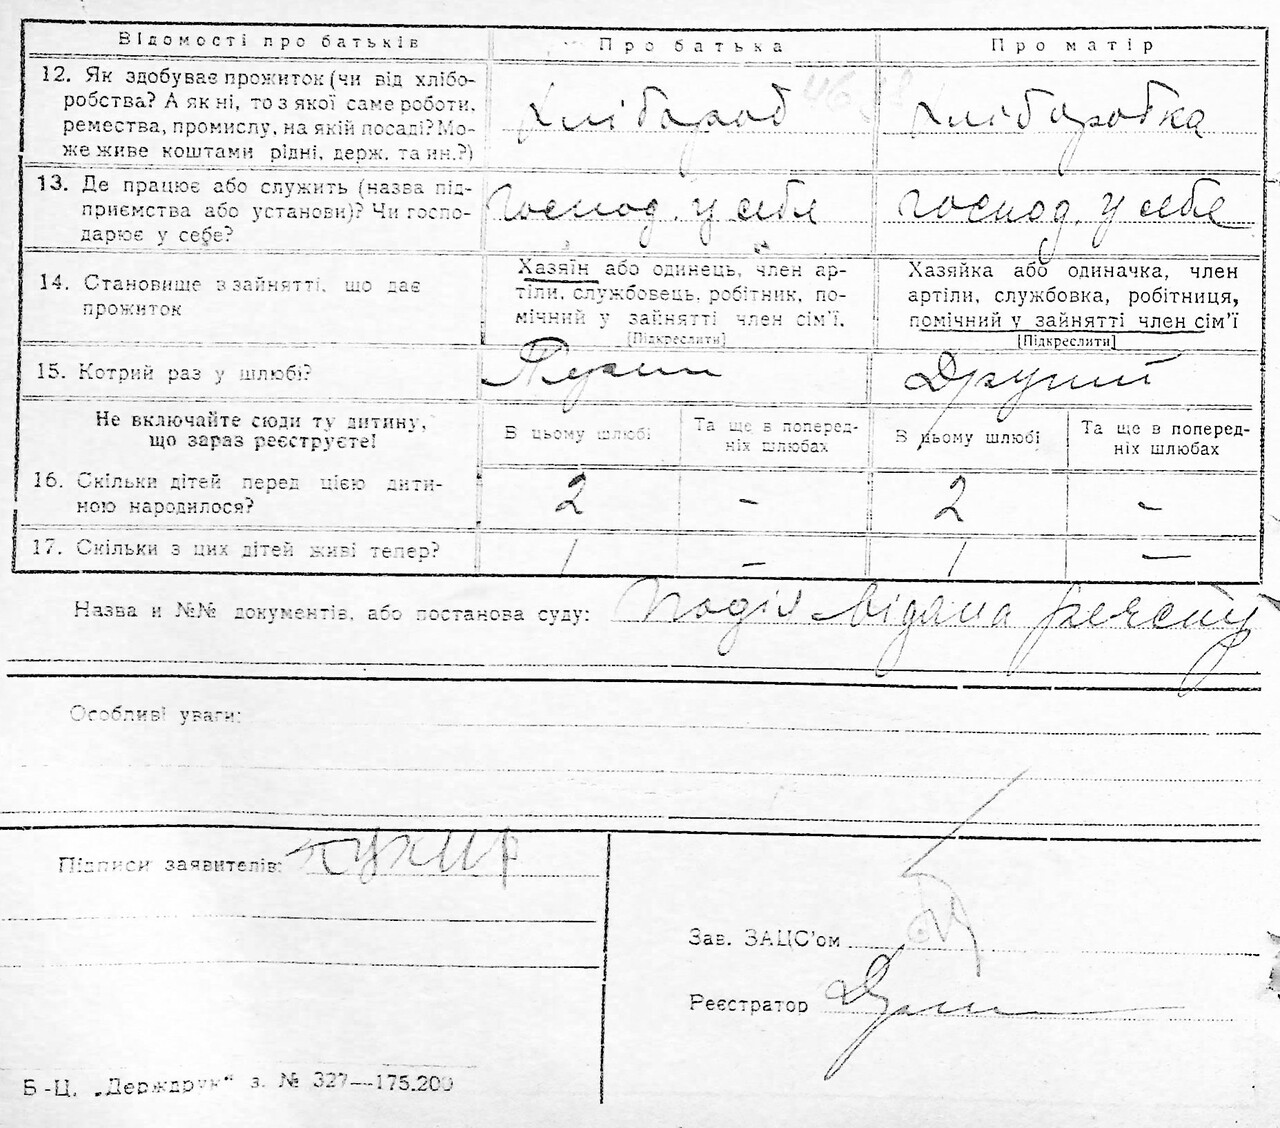 Відомості про батьків Про батька Про матір
12. Як здобуває прожиток (чи від хлібо- Хлібороб Хліборобка
робства? А як ні, то з якої саме роботи,
ремества, промислу, на якій посаді? Мо-
же живе коштами рідні, держ. та ин.?)
13. Де працює або служить (назва під- Господ. у себе Господ. у себе
приємства або установи)? Чи госпо-
дарює у себе?
14. Становище в зайнятті, що дає
прожиток
Хазяїн або одинець, член ар-
тіли, службовець, робітник, по-
мічний у зайнятті член сім'ї.
[Підкреслити]
Хазяйка або одиначка, член
артіли, службовка, робітниця,
помічний у зайнятті член сім'ї
[Підкреслити]
15. Котрий раз у шлюбі? Другий
Не включайте сюди ту дитину,
що зараз реєструєте!
В цьому шлюбі
Та ще в поперед-
ніх шлюбах
В цьому шлюбі
Та ще в поперед-
ніх шлюбах
16. Скільки дітей перед цією дити-
ною народилося?
2 - 2 -
17. Скільки з цих дітей живі тепер? 1 - 1 -
Назва и №№ документів, або постанова суду: Подія відома
Особливі уваги:
Підписи заявителів: Кухар
Зав. ЗАЦС'ом
Реєстратор
Б-Ц. „Держдрук“ з. № 327—175.200